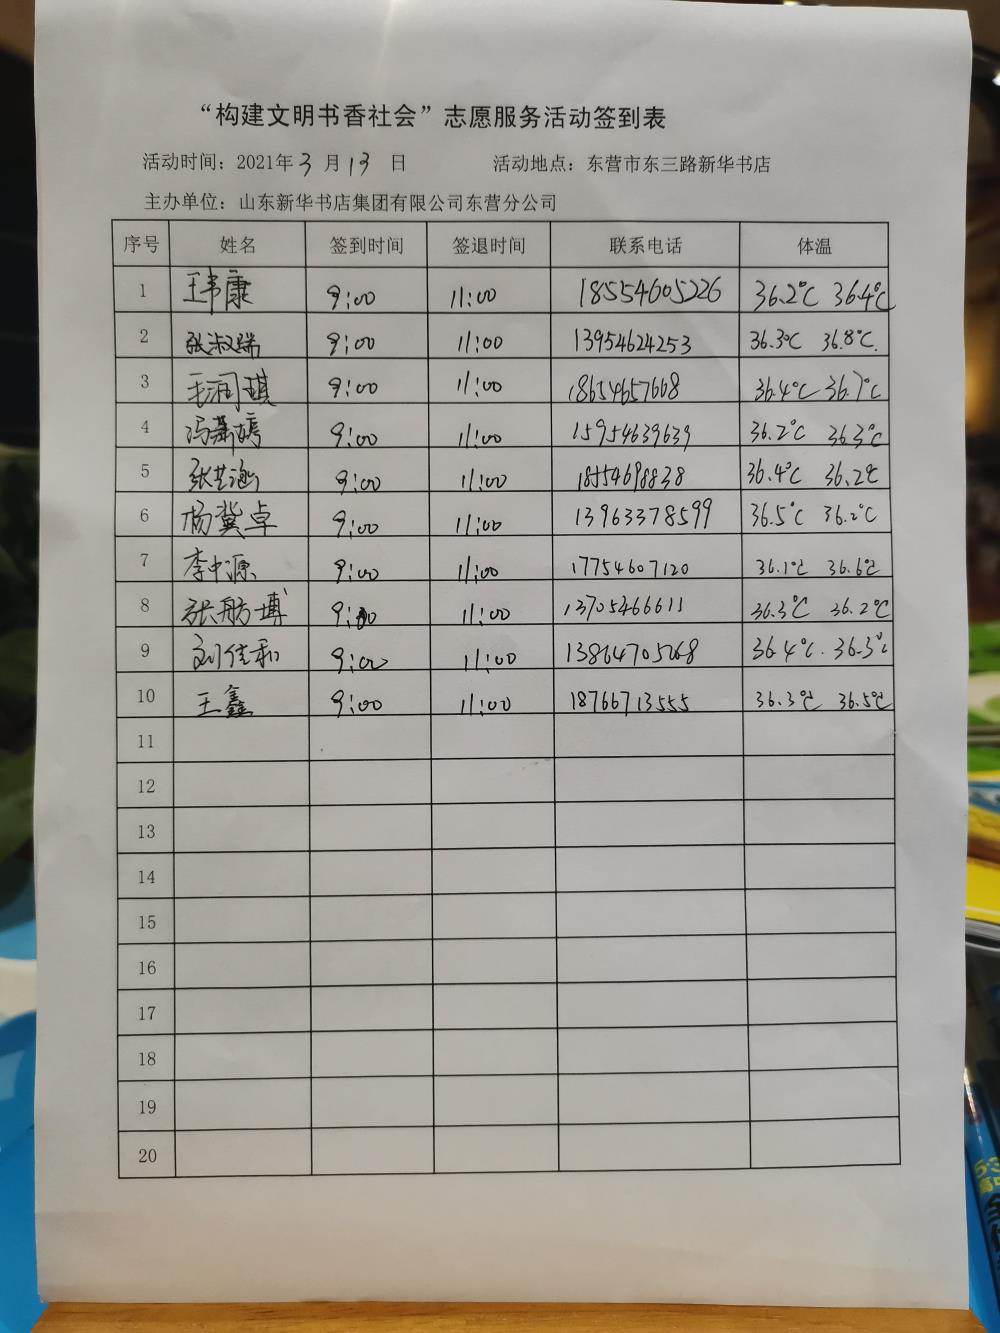 “构建文明书香社会”志愿服务活动签到表
活动时间：2021年 3 月 13 日 活动地点：东营市东三路新华书店
主办单位：山东新华书店集团有限公司东营分公司
序号 姓名 签到时间 签退时间 联系电话 体温
1 王韦康 9:00 11:00 18554605226 36.2℃ 36.4℃
2 张淑瑞 9:00 11:00 13954624253 36.3℃ 36.8℃.
3 毛润琪 9:00 11:00 18654657668 36.4℃ 36.7℃
4 冯萧娉 9:00 11:00 15954639639 36.2℃ 36.3℃
5 张艺涵 9:00 11:00 36.4℃ 36.2℃
6 杨冀卓 9:00 11:00 13963378599 36.5℃ 36.2℃
7 李中源 9:00 11:00 17754607120 36.1℃ 36.6℃
8 张舫博 9:00 11:00 13705466611 36.3℃ 36.2℃
9 刘佳和 9:00 11:00 13864705268 36.4℃. 36.3℃
10 王鑫 9:00 11:00 18766713555 36.3℃ 36.5℃
11
12
13
14
15
16
17
18
19
20